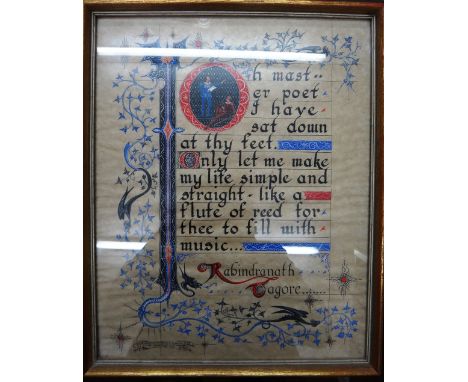 Oh mast-
er poet
I have
sat down
at thy feet.
Only let me make
my life simple and
straight - like a
flute of reed for
thee to fill with
music...
Rabindranath
Tagore.......